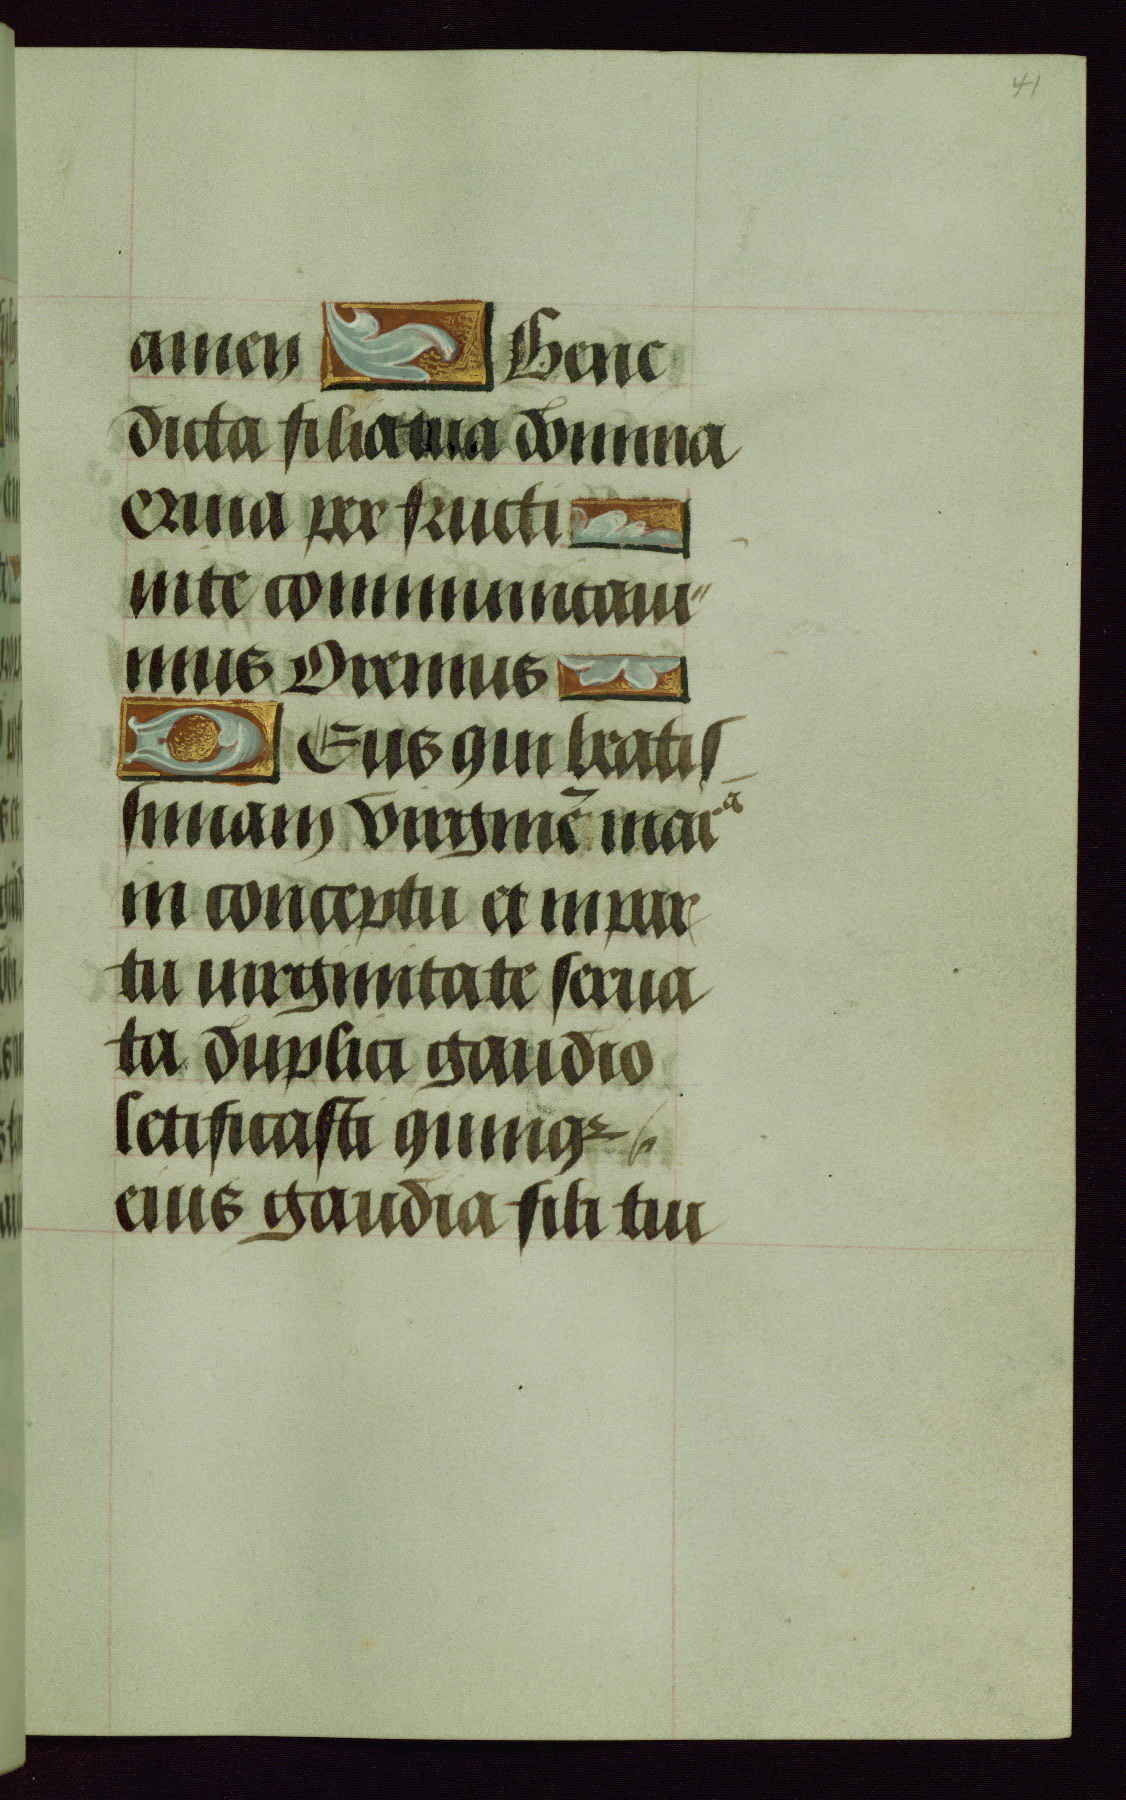 41
amen Bene
dicta filia tua domina
et uia per fructi
uite communicaui
mus Oremus
Deus qui beatis
simam virginē maria
in conceptu et in par
tu uirginitate serua
ta duplici gaudio
letificasti quinqꝫ
eius gaudia fili tui